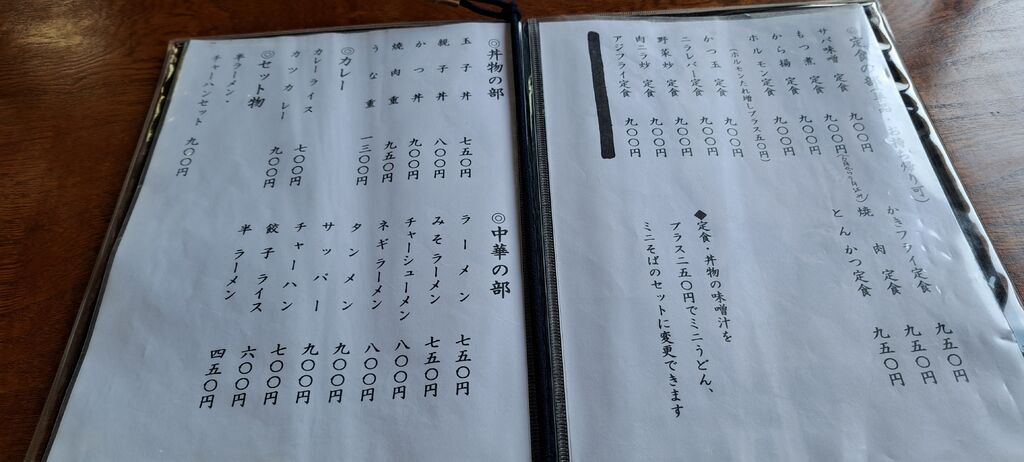 ◎定食の部
お持ち帰り可)
サバ味噌 定食 九〇〇円
もつ煮 定食 九〇〇円
から揚 定食 九〇〇円
ホルモン定食 九〇〇円
(ホルモンたれ増しプラス五〇円)
かつ玉 定食 九〇〇円
ニラレバー定食 九〇〇円
野菜炒 定食 九〇〇円
肉ニラ炒 定食 九〇〇円
アジフライ定食 九〇〇円
かきフライ定食 九五〇円
焼肉 定食 九五〇円
とんかつ定食 九五〇円
◆定食・丼物の味噌汁を
プラス二五〇円でミニうどん、
ミニそばのセットに変更できます
◎丼物の部
玉子丼 七五〇円
親子丼 八〇〇円
かつ丼 九〇〇円
焼肉重 九五〇円
うな重 一三〇〇円
◎カレー
カレーライス 七〇〇円
カツカレー 九〇〇円
◎セット物
半ラーメン・
チャーハンセット 九〇〇円
◎中華の部
ラーメン 七五〇円
みそラーメン 七五〇円
チャーシューメン 八〇〇円
ネギラーメン 八〇〇円
タンメン 九〇〇円
サッパー 九〇〇円
チャーハン 七〇〇円
餃子ライス 六〇〇円
半ラーメン 四五〇円